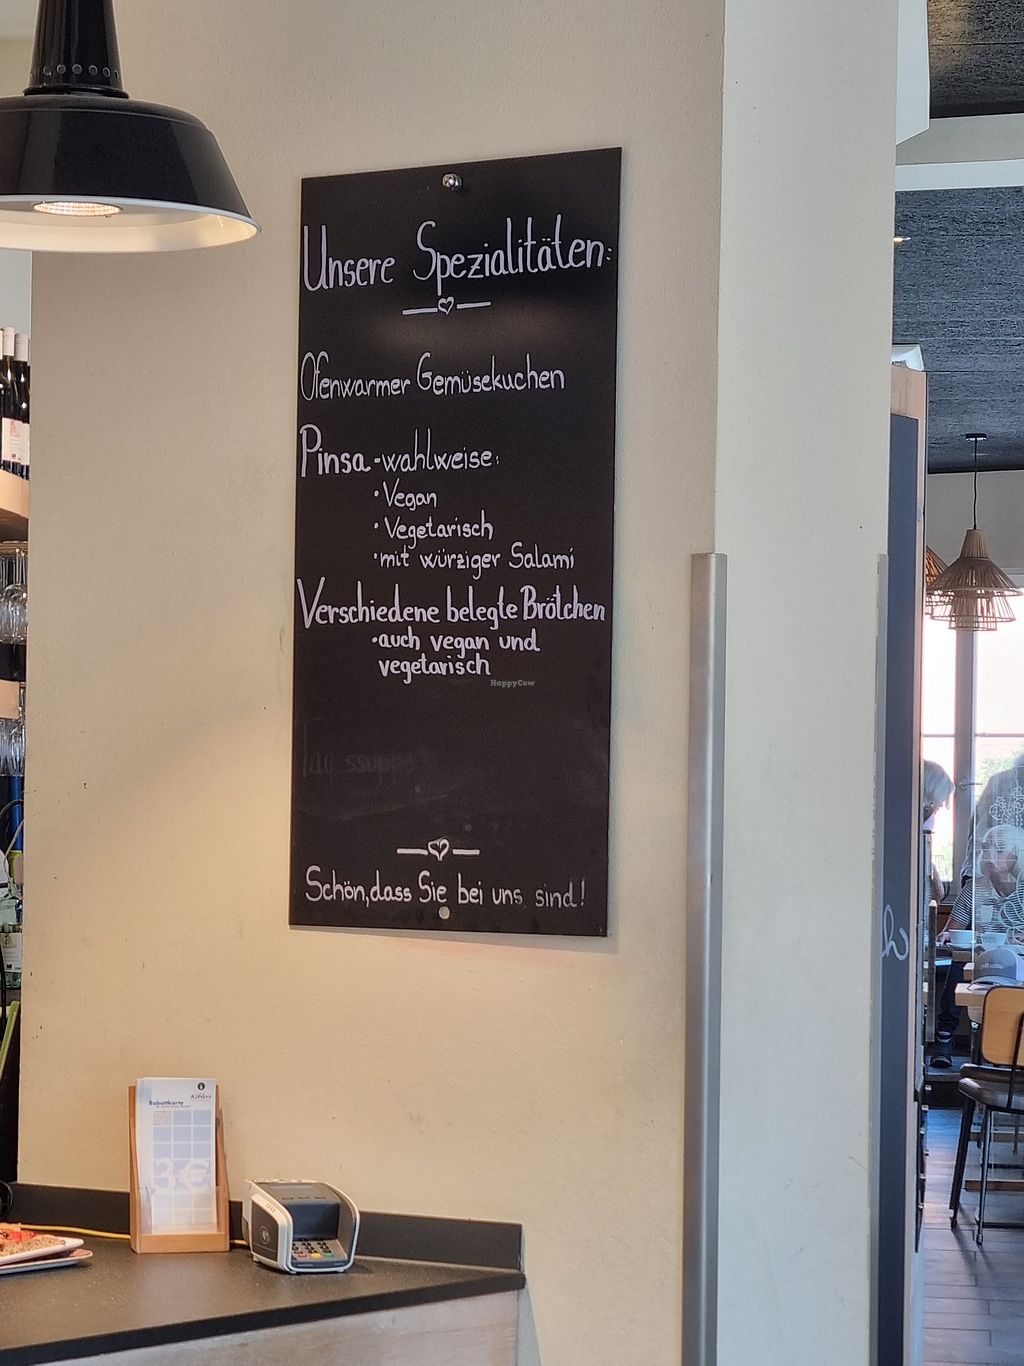 Unsere Spezialitäten:
Ofenwarmer Gemüsekuchen
Pinsa - wahlweise:
· Vegan
· Vegetarisch
· mit würziger Salami
Verschiedene belegte Brötchen
· auch vegan und
vegetarisch
HappyCow
Schön, dass Sie bei uns sind!
Rabattkarte
3€